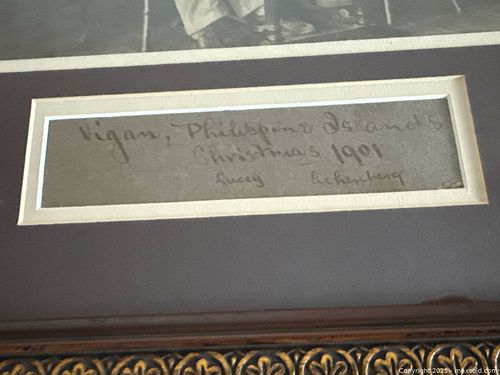 Vigan, Philippine Islands.
Christmas 1901
Lucey Eichenberg
Copyright 2025 - maxsold.com